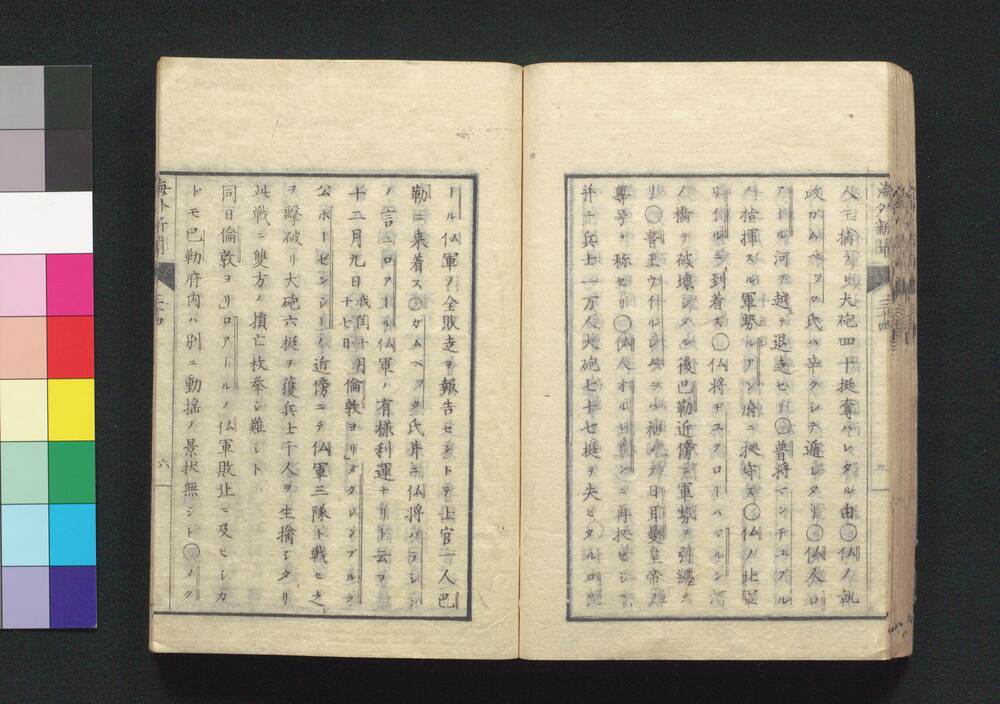 人モ擒ラレ大砲四十挺奪ハレタル由〇仏ノ執
政ガムベツタ氏ハ辛クシテ遁レタリ〇仏人ロ
アール河ヲ越テ退走セリ〇普将マンチユフル
ノ指揮スル軍勢ルアン府ニ拠守ス〇仏ノ北
ニ到着ス〇仏将ヂユクローハマルン河
ノ橋ヲ破壊シタル後巴勒近傍ニ軍勢ヲ引纏
〇普王ウイルレルムハ初メテ日耳曼皇帝
尊号ヲ称セリ〇仏人オルレアンニ再
井ニ兵士一万人大砲七十七挺ヲ失ヒタルロ
ール仏軍ヲ全敗走ヲ報告セントテ士官一人巴
勒ニ来着ス〇ガムベツタ氏井ニ仏将
ノ言ニロアール仏軍ノ有様利運ナリト云フ
十二月九日我閏十月十七日倫敦ヨリ
公ボーゼンシーノ近傍ニテ仏軍三隊ト戦ヒ之
ヲ撃破リ大砲六挺ヲ獲兵士千人ヲ生擒シタリ
此戦ニ雙方ノ損亡枚挙シ難シト
同日倫敦ヨリロアールノ仏軍敗北ニ及ヒシカ
ドモ巴勒府内ハ別ニ動揺ノ景状無シト〇メク
海外新聞
三十四
六